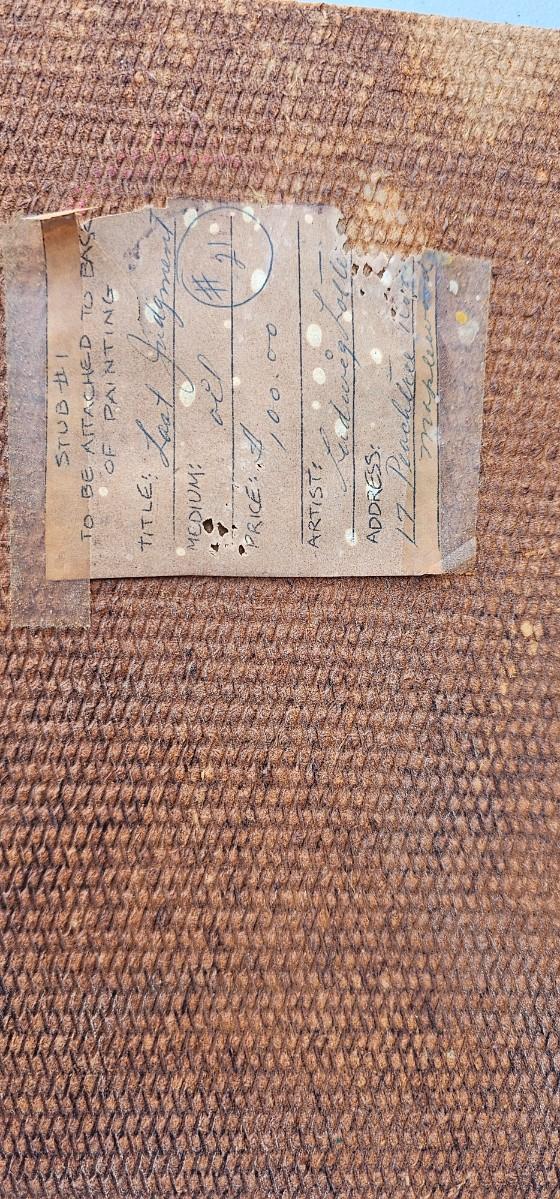 STUB #1
TO BE ATTACHED TO BACK
OF PAINTING
TITLE: Last Judgment
MEDIUM: oil
# 21
PRICE: $ 100.00
ARTIST: Ludwig
ADDRESS:
17 Peachtree
Maplewood